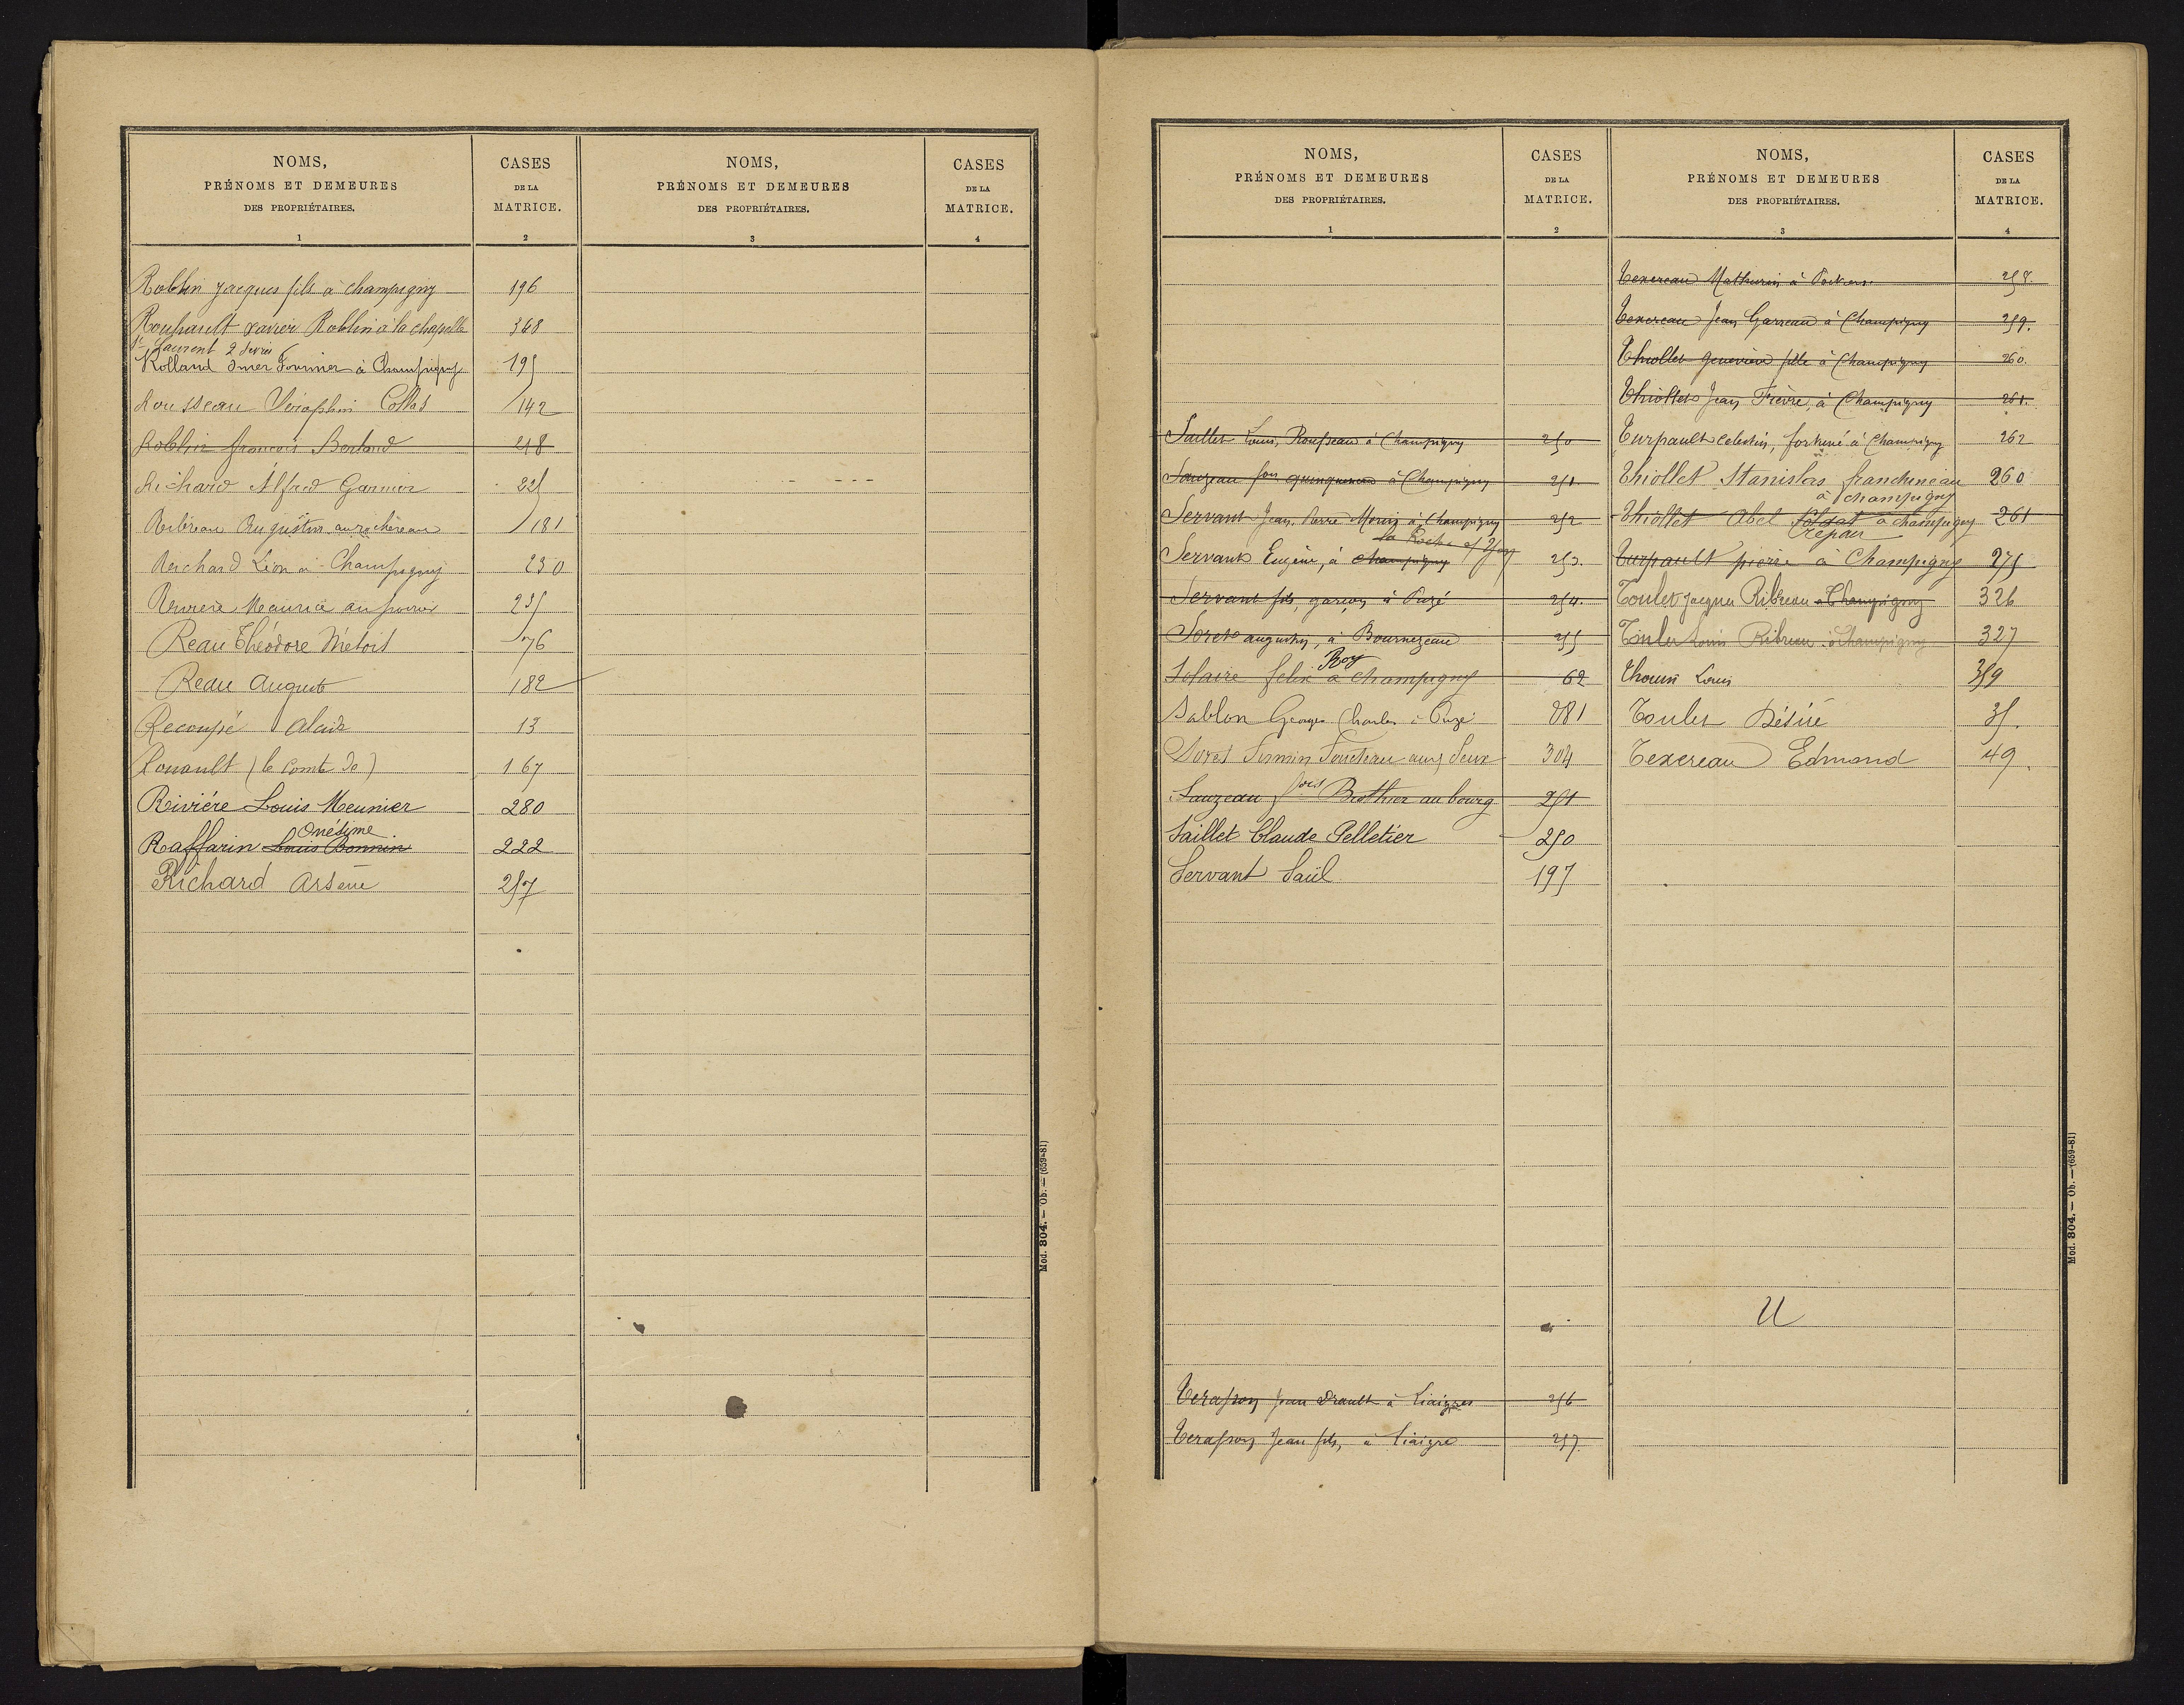 NOMS,
PRÉNOMS ET DEMEURES
DES PROPRIÉTAIRES.
1
CASES
DE LA
MATRICE.
2
NOMS,
PRÉNOMS ET DEMEURES
DES PROPRIÉTAIRES.
3
CASES
DE LA
MATRICE.
4
Roblin Jacques fils à champigny 196
Rouhault xavier Roblin à la chapelle 368
St Laurent 2 Sèvres
Rolland Omer Fournier à Champigny 195
Rousseau Séraphin Collas 142
Roblin francois Berland 248
Richard Alfred Garnier 225
Ribreau Augustin au rochereau 181
Richard Léon à Champigny 230
Maurice au 235
Reau Théodore Métois 76
Reau Auguste 182
Recoupé Alcide 13
Rouault (le Comte de) 167
Rivière Louis Meunier 280
Onésime
Raffarin Louis Bonnin 222
Richard Arsène 257
Mod. 804. — Ob. — (659-81)
NOMS,
PRÉNOMS ET DEMEURES
DES PROPRIÉTAIRES.
1
CASES
DE LA
MATRICE.
2
Saillet Louis, Rousseau à Champigny 250
Sauzeau fois quinquenau à Champigny 251
Servant Jean Pierre Morin à Champigny 252
la Roche s/ Yon
Servant Eugène, à champigny 253.
Servant fils, garçon à Puzé 254.
Soret augustin, à Bournezeau 255
Roy
Solaire felix à champigny 62
Sablon Georges Charles à Puzé 281
Soret Firmin Foucteau aux Deux 304
Sauzeau fois Brothier au bourg 251
Saillet Claude Pelletier 250
Servant Saül 197
Terasson Jean Drault à Liaigres 256
Terasson Jean fils, à Liaigre 257.
NOMS,
PRÉNOMS ET DEMEURES
DES PROPRIÉTAIRES.
3
CASES
DE LA
MATRICE.
4
Texereau Mathurin à Poitiers 258.
Texereau Jean Garreau à Champigny 259.
Thiollet Geneviève fille à Champigny 260.
Thiollet Jean Fièvre, à Champigny 261.
Turpault celestin, fortuné à Champigny 262
Thiollet Stanislas franchineau 260
à champigny
Thiollet Abel soldat à champigny 261
Crépau
Turpault pierre à Champigny 275
Toulet Jacques Ribreau à Champigny 326
Toulet Louis Ribreau à Champigny 327
Thouin Louis 359
Toulet Désiré 35.
Texereau Edmond 49.
U
Mod. 804. — Ob. — (659-81)